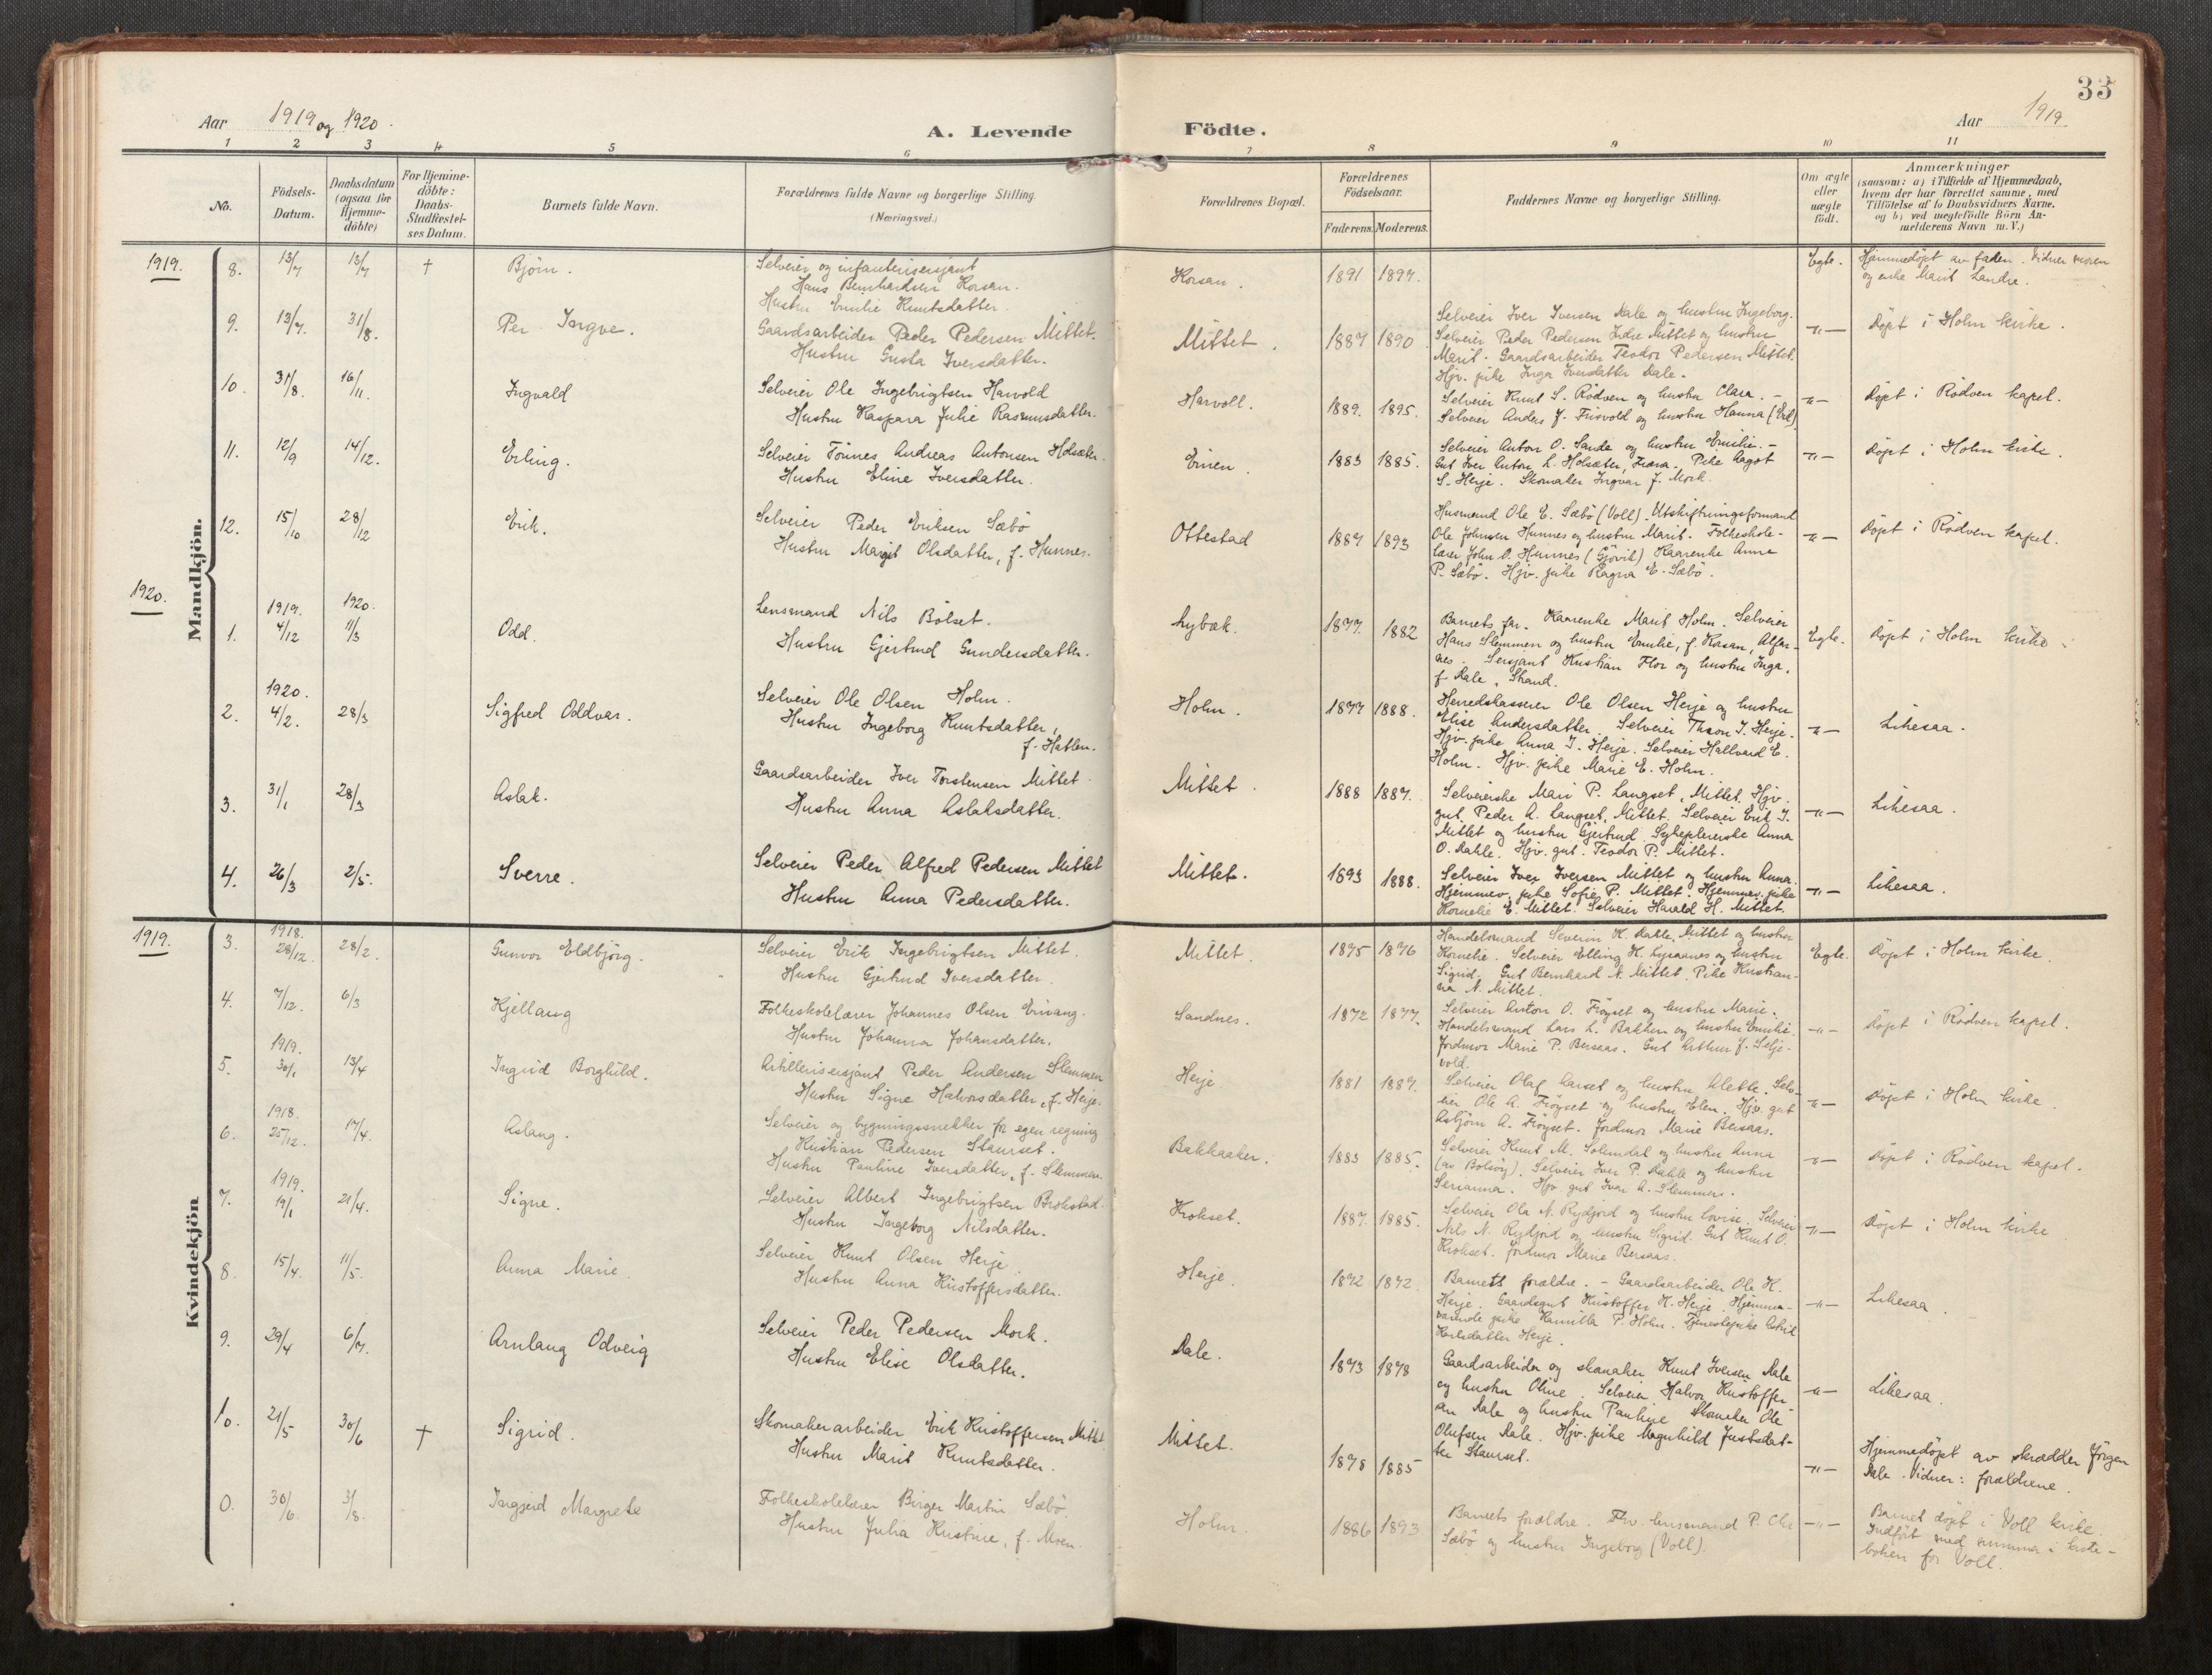 33
Aar 1919 og 1920.
A. Levende Födte.
Aar 1919.
1 2 3 4 5 6 7 8 9 10 11
No.
Födsels-
Datum.
Daabsdatum
(ogsaa for
Hjemme-
döbte)
For Hjemme-
döbte:
Daabs-
Stadfæstel-
ses Datum.
Barnets fulde Navn.
Forældrenes fulde Navne og borgerlige Stilling.
(Næringsvei.)
Forældrenes Bopæl.
Forældrenes
Födselsaar.
Faderens. Moderens.
Faddernes Navne og borgerlige Stilling.
Om ægte
eller
uægte
födt.
Anmærkninger
(saasom: a) i Tilfælde af Hjemmedaab,
hvem der har forrettet samme, med
Tilföielse af to Daabsvidners Navne,
og b) ved uægtefödte Börn An-
melderens Navn m. V.)
Mandkjön.
1919.
8. 13/7 13/7 † Björn.
Selveier og infanterisersjant
Hans Bernhardsen Korsan.
Hustru Emilie Knutsdatter.
Korsan. 1891 1897.
Egte.
Hjemmedöpt av faden. Vidner moren
og enke Marit Landre.
9. 13/7. 31/8. Per Ingve.
Gaardsarbeider Peder Pedersen Mittet.
Hustru Gusta Iversdatter.
Mittet. 1887 1890
Selveier Iver Iversen Dale og hustru Ingeborg.
Selveier Peder Pedersen Indre Mittet og hustru
Marit. Gaardsarbeider Teodor Pedersen Mittet.
Hjv. pike Inga Iversdatter Dale.
-"- Döpt i Holm kirke.
10. 31/8. 16/11. Ingvald
Selveier Ole Ingebrigtsen Harvold
Hustru Kaspara Julie Rasmusdatter.
Harvoll. 1889. 1895.
Selveier Knut S. Rödven og hustru Clara. -
Selveier Anders J. Frisvold og hustru Hanna (Eid)
-"- Döpt i Rödven kapel.
11. 12/9 14/12. Erling.
Selveier Tönnes Andreas Antonsen Holsæter.
Hustru Eline Iversdatter.
Einen. 1883 1885.
Selveier Anton O. Sande og hustru Emilie. -
Gut Iver Anton L. Holsæter, Pike Aagot
S. Herje. Skomaker Ingvar J. Mork.
-"- Döpt i Holm kirke.
12. 15/10 28/12 Erik.
Selveier Peder Eriksen Sæbö
Hustru Margit Olsdatter, f. Hunnes.
Ottestad 1887 1893
Husmand Ole E. Sæbö (Voll). Utskiftningsformand
Ole Johnsen Hunnes og hustru Marit. Folkeskole-
lærer John O. Hunnes (Gjövik) Kaarenke Anne
P. Sæbö. Hjv. pike Ragna E. Sæbö.
-"- Döpt i Rödven kapel.
1920.
1. 1919. 4/12 1920. 11/3 Odd.
Lensmand Nils Bölset.
Hustru Gjertrud Gundersdatter.
Lybæk. 1877. 1882
Barnets far. Kaarenke Marit Holm. Selveier
Hans Slemmen og hustru Emilie, f. Rasan, Alfar-
nes. Sersjant Kristian Flor og hustru Inga,
f. Dale, Strand.
Egte. Döpt i Holm kirke.
2. 1920. 4/2. 28/3 Sigfred Oddvar.
Selveier Ole Olsen Holm.
Hustru Ingeborg Knutsdatter,
f. Hatlen.
Holm. 1877 1888.
Herredskasserer Ole Olsen Herje og hustru
Elise Andersdatter. Selveier Thron I. Herje.
Hjv. pike Anna I. Herje. Selveier Hallvard E.
Holm. Hjv. pike Marie E. Holm.
-"- Likesaa.
3. 31/1 28/3 Aslak.
Gaardsarbeider Iver Torstensen Mittet.
Hustru Anna Aslaksdatter.
Mittet. 1888 1887.
Selveierske Mari P. Langset, Mittet. Hjv.
gut Peder A. Langset, Mittet. Selveier Erik I.
Mittet og hustru Gjertrud. Sykepleierske Anna
O. Dahle. Hjv. gut. Teodor P. Mittet.
-"- Likesaa.
4. 26/3 2/5. Sverre.
Selveier Peder Alfred Pedersen Mittet
Hustru Anna Pedersdatter.
Mittet. 1893 1888.
Selveier Iver Iversen Mittet og hustru Anna.
Hjemmev. pike Sofie P. Mittet. Hjemmev. pike
Kornelie E. Mittet. Selveier Harald H. Mittet.
-"- Likesaa.
Kvindekjön
1919.
3. 1918. 28/12. 28/2. Gunvor Eldbjörg.
Selveier Erik Ingebrigtsen Mittet.
Hustru Gjertrud Iversdatter.
Mittet. 1875 1876
Handelsmand Severin K. Dahle, Mittet og hustru
Kornelie. Selveier Elling H. og hustru
Sigrid. Gut Bernhard N. Mittet. Pike Kristian-
na N. Mittet.
Egte. Döpt i Holm kirke.
4. 7/12. 6/3 Kjellaug
Folkeskolelærer Johannes Olsen Eivang.
Hustru Johanna Johansdatter.
Sandnes. 1872 1877.
Selveier Anton O. Fröyset og hustru Marie.
Handelsmand Lars L. Bakken og hustru Emilie.
Jordmor Marie P. Bersaas. Gut Arthur J. Selje-
vold.
-"- Döpt i Rödven kapel.
5. 1919. 30/1 13/4 Ingrid Borghild.
Artillerisersjant Peder Andersen Slemmen
Hustru Signe Halvorsdatter, f. Herje.
Herje. 1881 1887.
Selveier Olaf Aarset og hustru Alette. Selv-
eier Ole A. Fröyset og hustru Elen. Hjv. gut
Asbjörn A. Fröyset. Jordmor Marie Bersaas.
-"- Döpt i Holm kirke.
6. 1918. 25/12. 17/4. Aslaug.
Selveier og bygningssnekker for egen regning
Kristian Pedersen Staurset.
Hustru Pauline Iversdatter, f. Slemmen.
Bakkaaker. 1883 1885.
Selveier Knut M. Solemdal og hustru Anna
(av Bolsöy). Selveier Iver P. Dahle og hustru
Serianna. Hjv gut Ivar A. Slemmen.
-"- Döpt i Rödven kapel.
7. 1919. 19/1 21/4. Signe.
Selveier Albert Ingebrigtsen Brokstad.
Hustru Ingeborg Nilsdatter.
Krokset. 1887. 1885.
Selveier Ola N. Rydjord og hustru Lovise. Selveier
Nils N. Rydjord og hustru Sigrid. Gut Knut O.
Krokset. Jordmor Marie Bersaas.
-"- Döpt i Holm kirke
8. 15/4. 11/5. Anna Marie.
Selveier Knut Olsen Herje.
Hustru Anna Kristoffersdatter.
Herje. 1872 1872.
Barnets forældre. - Gaardsarbeider Ole K.
Herje. Gaardsgut Kristoffer K. Herje. Hjemme-
værende pike Kamilla P. Holm. Tjenestepike Astrid
Karlsdatter Herje.
-"- Likesaa.
9. 29/4 6/7. Arnlaug Odveig
Selveier Peder Pedersen Mork.
Hustru Elise Olsdatter.
Dale. 1873 1878
Gaardsarbeider og skomaker Knut Iversen Dale
og hustru Oline. Selveier Halvor Kristoffer-
sen Dale og hustru Pauline. Skomaker Ole
Olufsen Dale. Hjv. pike Magnhild Justsdat-
ter Staurset.
-"- Likesaa.
10. 21/5 30/6 † Sigrid.
Skomakerarbeider Erik Kristoffersen Mittet.
Hustru Marit Knutsdatter.
Mittet. 1878 1885
-"- Hjemmedöpt av skrædder Jörgen
Dale. Vidner: forældrene.
0. 30/6 3/8. Ingjerd Margrete
Folkeskolelærer Birger Martin Sæbö.
Hustru Julia Kristine, f. Moen.
Holm. 1886 1893
Barnets forældre. Fhv. husmand P. Chr.
Sæbö og hustru Ingeborg (Voll).
-"- Barnet döpt i Voll kirke.
Indfört med nummer i kirke-
boken for Voll.